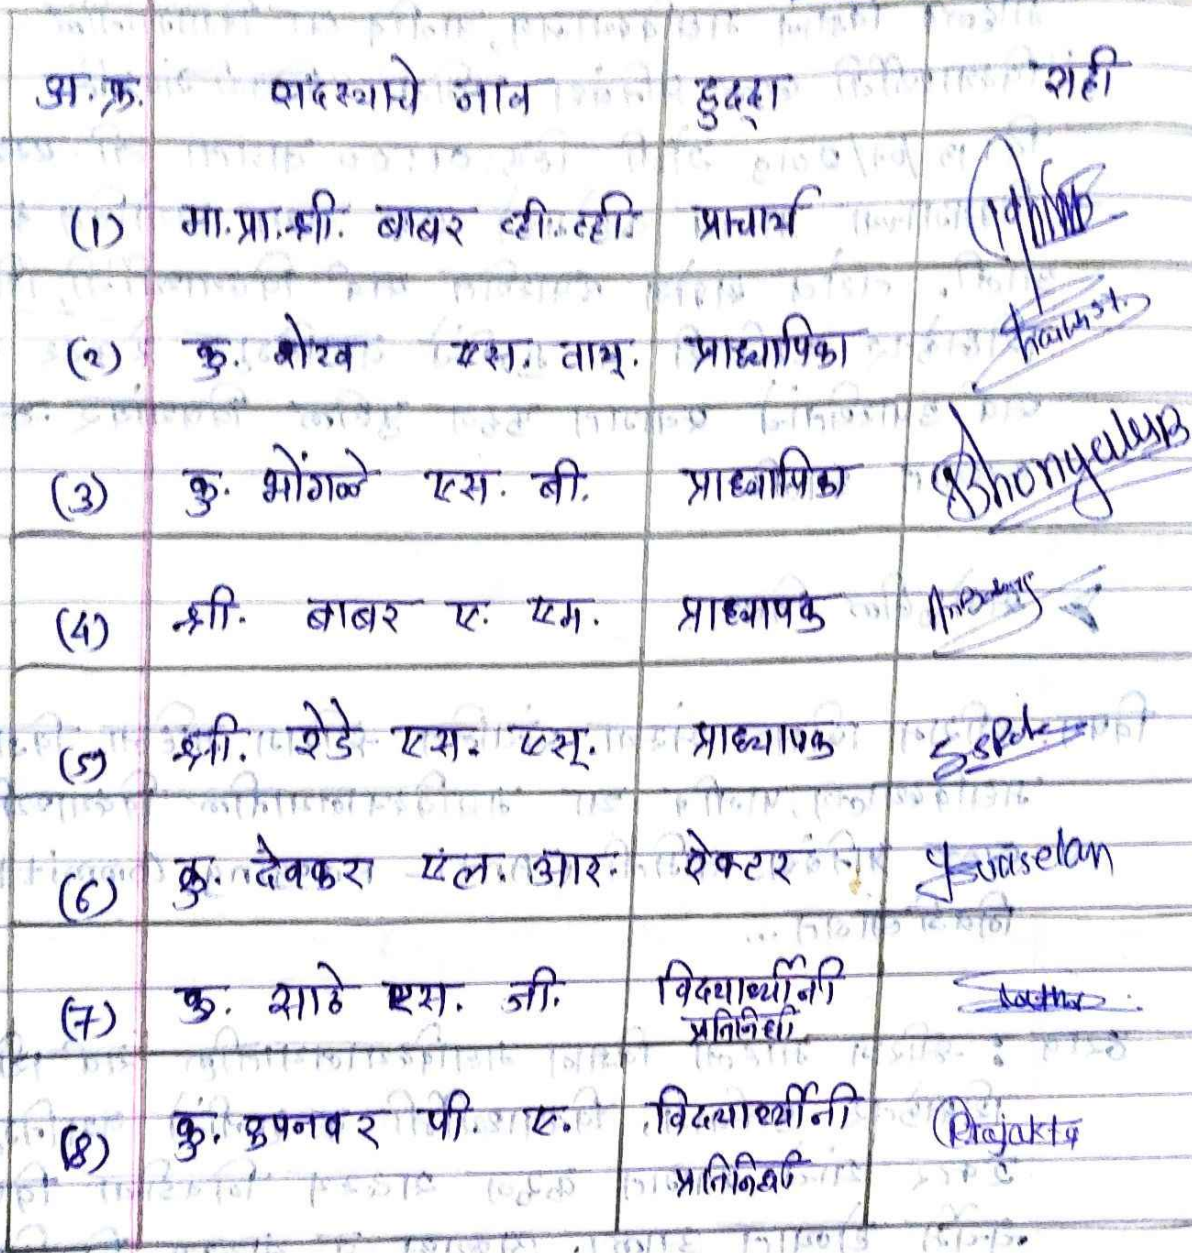 अ.क्र. सदस्याचे नाव हुद्दा सही
(1) मा.प्रा.श्री. बाबर व्ही.व्ही. प्राचार्य
(2) कु. शेख एस. वाय. प्राध्यापिका
(3) कु. भोंगळे एस. बी. प्राध्यापिका Bhongale SB
(4) श्री. बाबर ए. एम. प्राध्यापक
(5) श्री. शेडे एस. एस. प्राध्यापक
(6) कु. देवकर एल. आर. रेक्टर
(7) कु. साठे एस. जी. विद्यार्थीनी
प्रतिनिधी
(8) कु. रुपनवर पी. ए. विद्यार्थीनी Prajakta
प्रतिनिधी